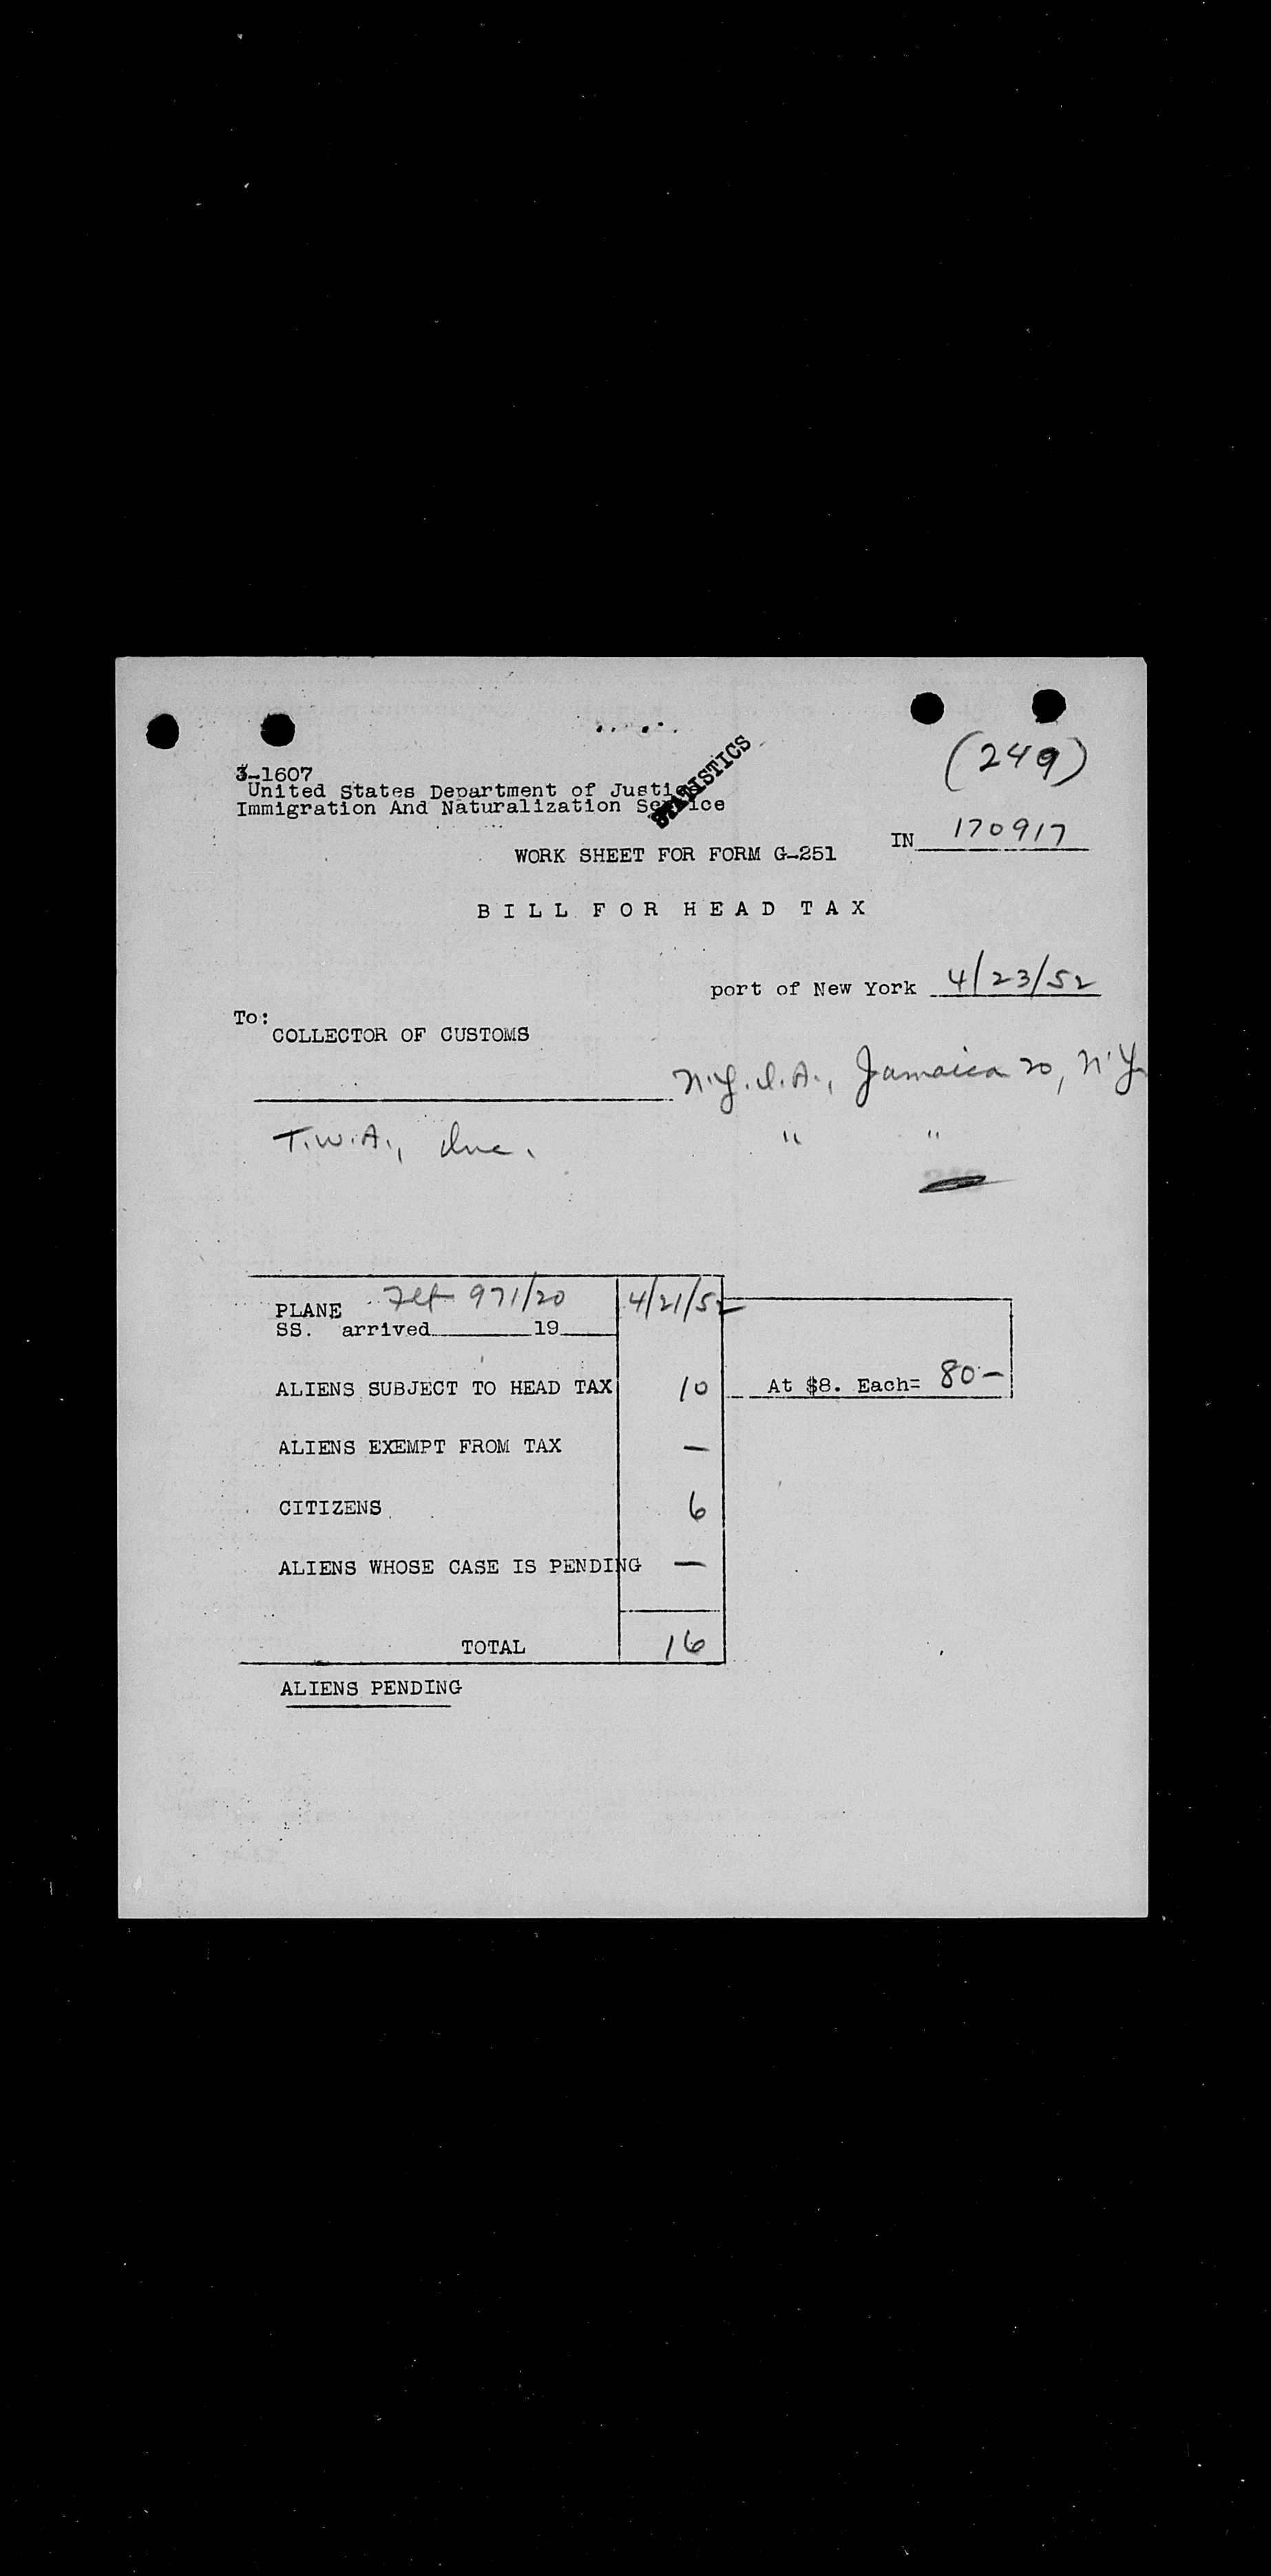 (249)
STATISTICS
3-1607
United States Department of Justice
Immigration And Naturalization Service
IN 170917
WORK SHEET FOR FORM G-251
BILL FOR HEAD TAX
port of New York 4/23/52
To:
COLLECTOR OF CUSTOMS
N.Y.I.A., Jamaica 20, N.Y.
T.W.A., Inc. " "
PLANE Flt 971/20 4/21/52
SS. arrived 19
ALIENS SUBJECT TO HEAD TAX 10 At $8. Each= 80-
ALIENS EXEMPT FROM TAX -
CITIZENS 6
ALIENS WHOSE CASE IS PENDING -
TOTAL 16
ALIENS PENDING